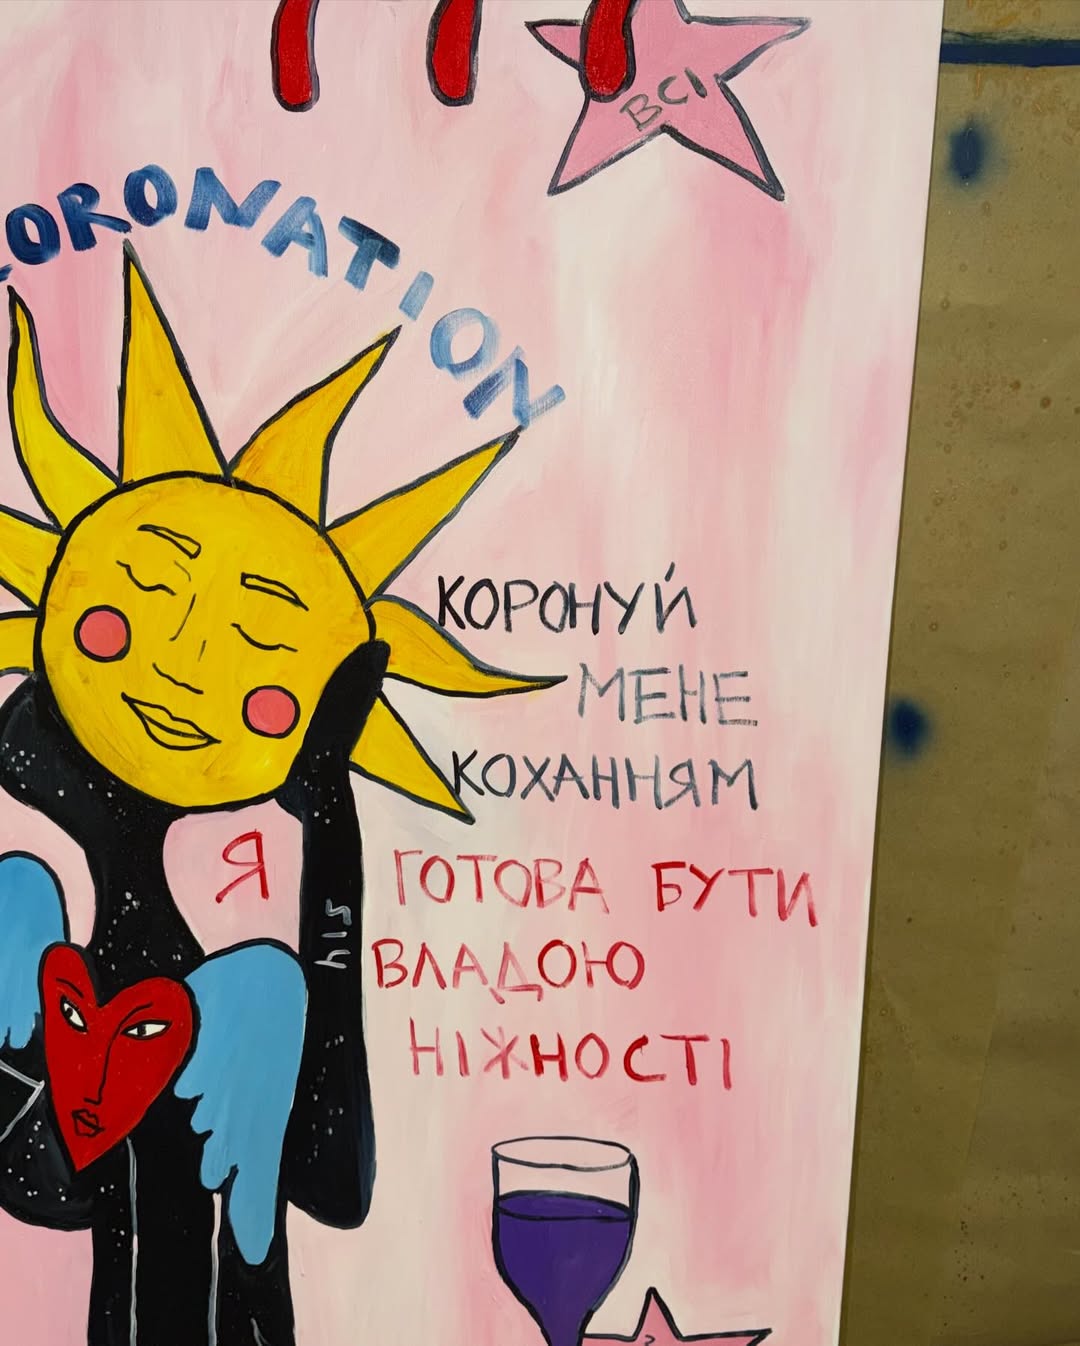 ВСІ
CORONATION
КОРОНУЙ
МЕНЕ
КОХАННЯМ
Я ГОТОВА БУТИ
ВЛАДОЮ
НІЖНОСТІ